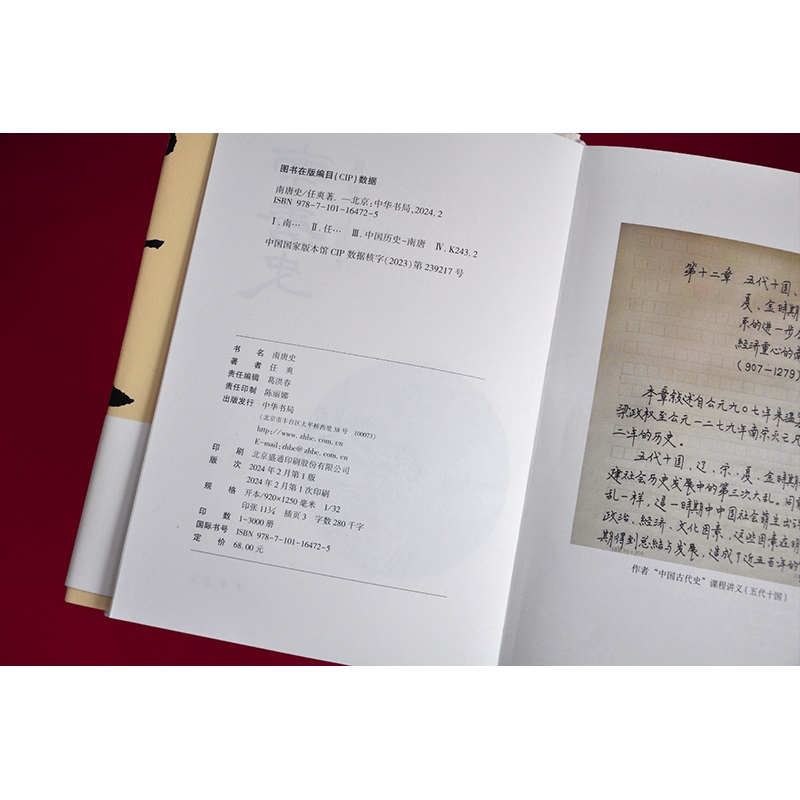 图书在版编目(CIP)数据
南唐史/任爽著.—北京:中华书局,2024.2
ISBN 978-7-101-16472-5
Ⅰ.南… Ⅱ.任… Ⅲ.中国历史-南唐 Ⅳ.K243.2
中国国家版本馆CIP数据核字(2023)第239217号
书 名 南唐史
著 者 任 爽
责任编辑 葛洪春
责任印制 陈丽娜
出版发行 中华书局
(北京市丰台区太平桥西里38号 100073)
http://www.zhbc.com.cn
E-mail:zhbc@zhbc.com.cn
印 刷 北京盛通印刷股份有限公司
版 次 2024年2月第1版
2024年2月第1次印刷
规 格 开本/920×1250毫米 1/32
印张11¼ 插页3 字数280千字
印 数 1-3000册
国际书号 ISBN 978-7-101-16472-5
定 价 68.00元
第十二章 五代十国、
夏、金時期
系的进一步
經济重心的南
(907-1279)
本章叙述自公元九〇七年朱温
梁政权至公元一二七九年南宋灭亡
二年的历史。
五代十国、辽、宋、夏、金時期
建社会历史发展中的第三次大乱。同
乱一样,這一時期中中国社会萌生出
政治、經济、文化因素,這些因素在明
期得到总結与发展,造成了近五百年的
作者“中国古代史”课程讲义(五代十国)